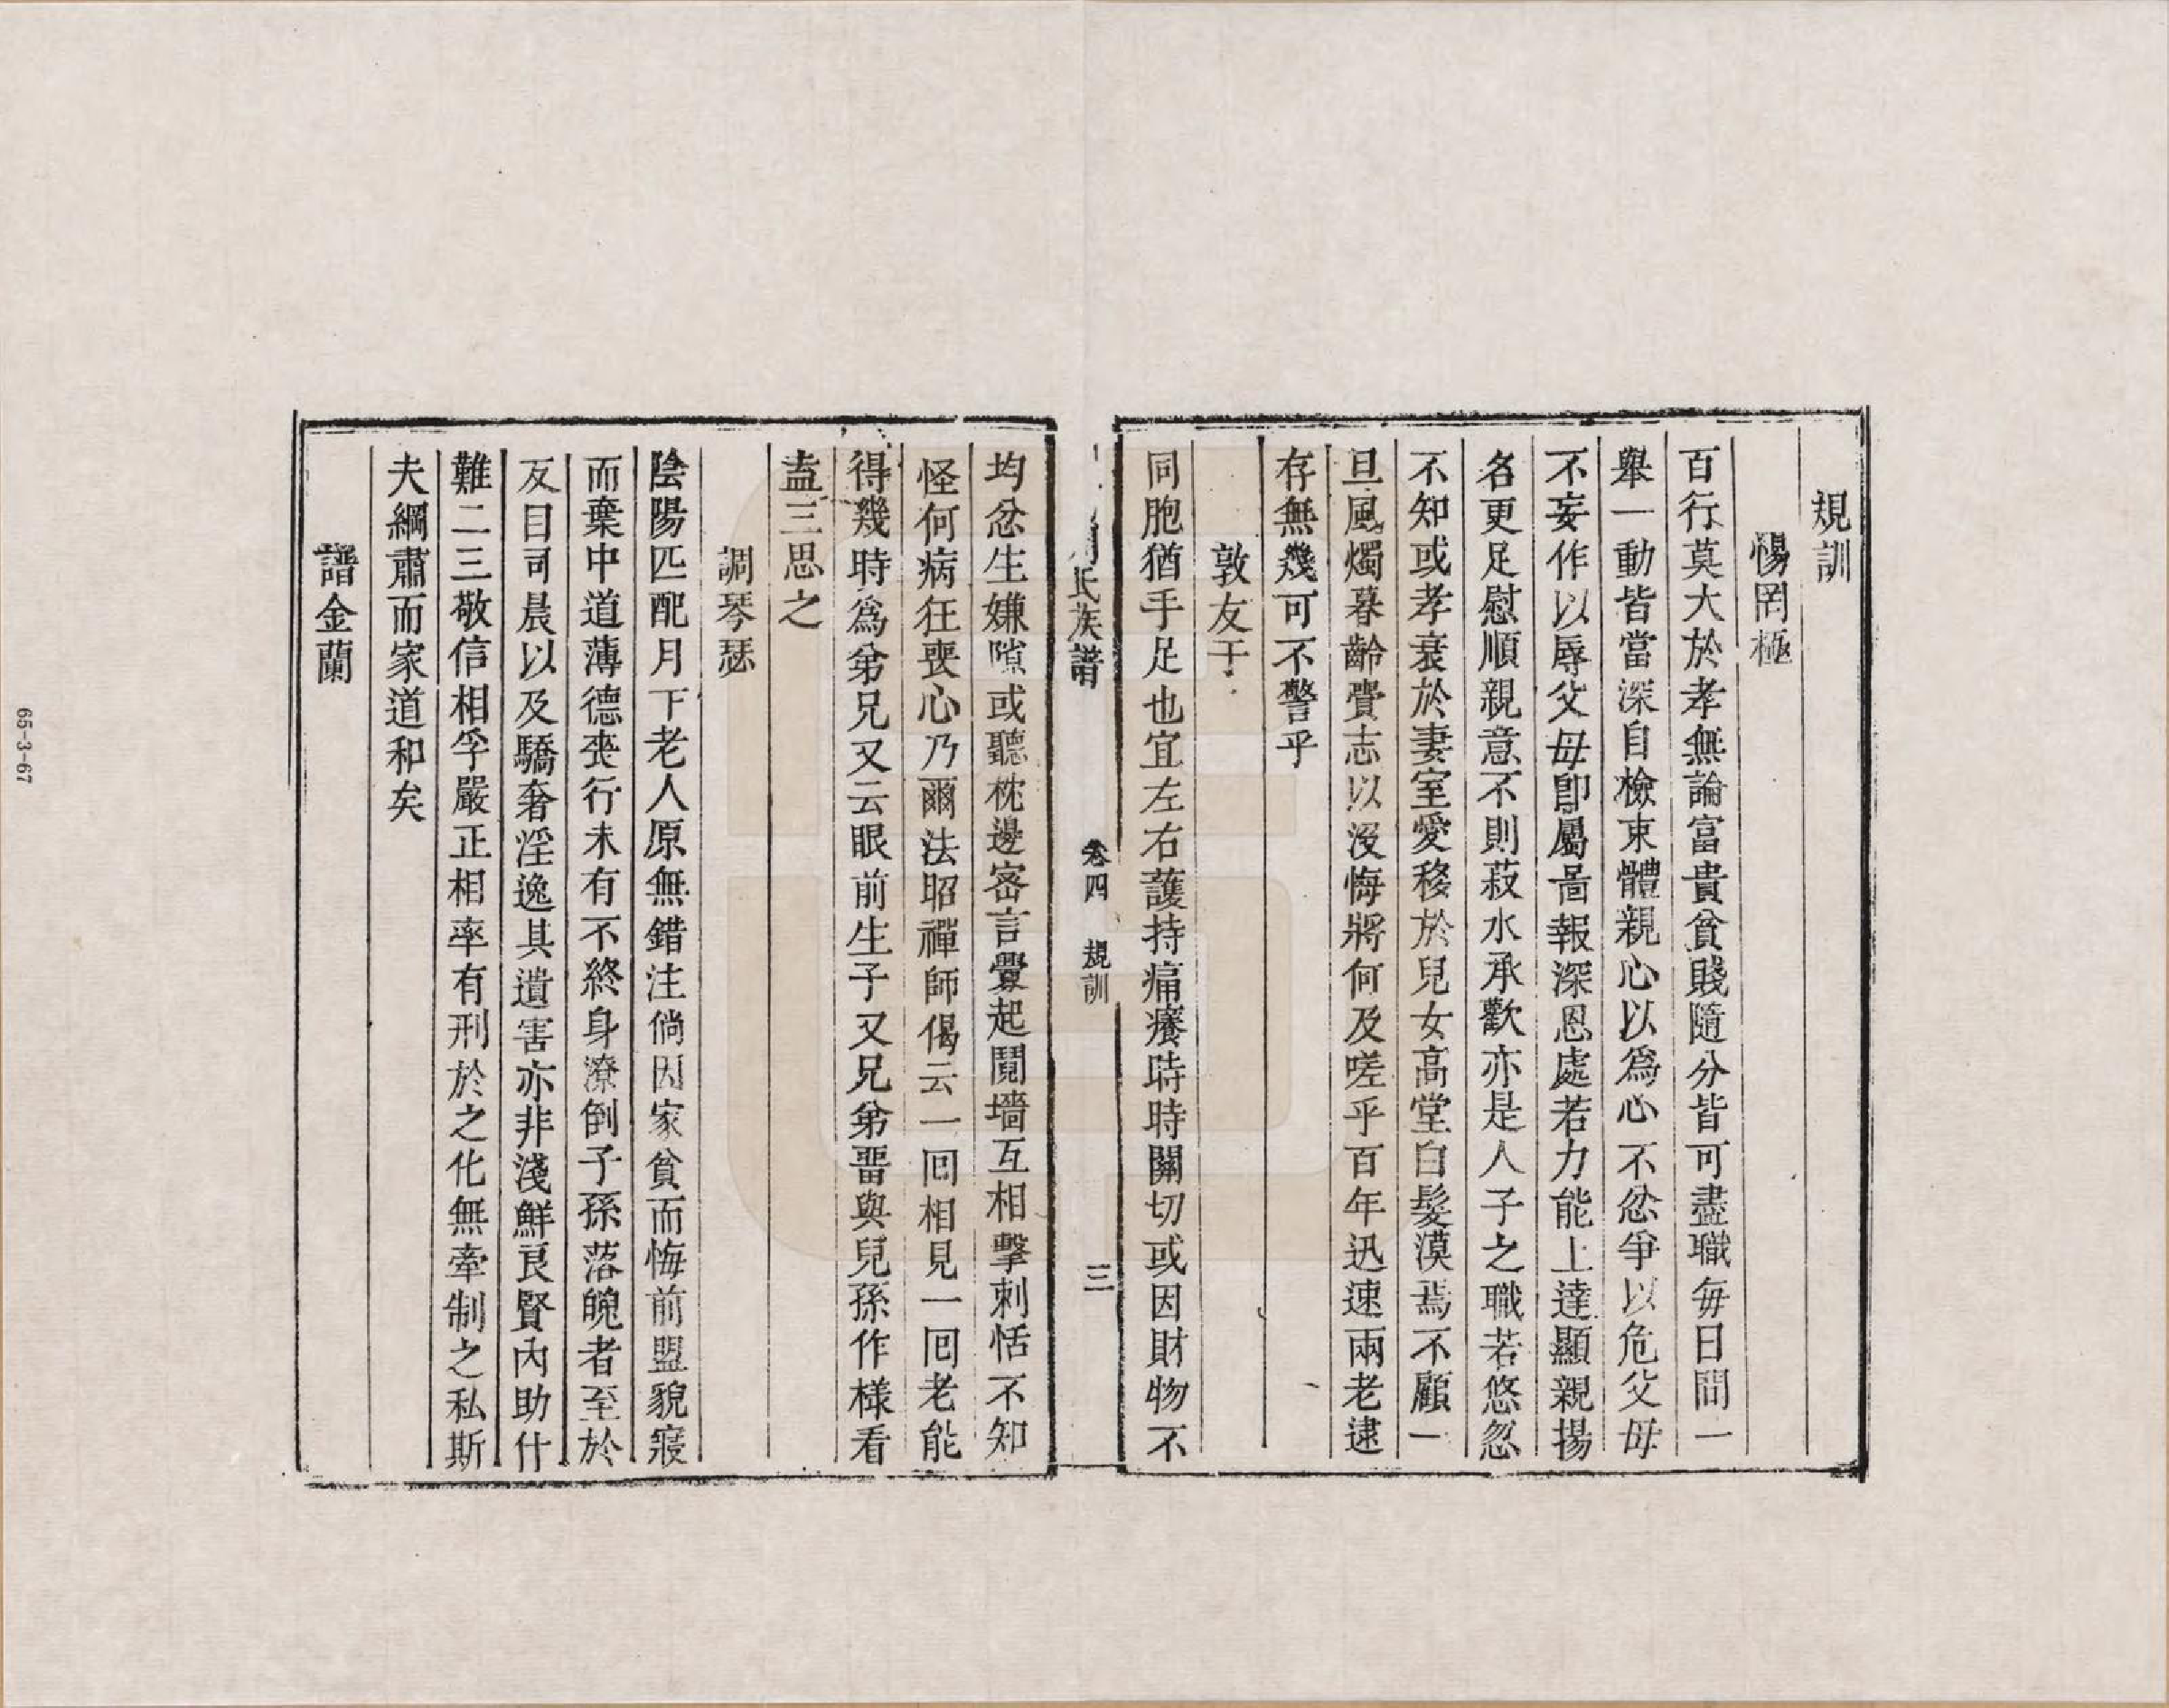 規訓
惕罔極
百行莫大於孝無論富貴貧賤隨分皆可盡職每日問一
舉一動皆當深自檢束體親心以爲心不忿爭以危父母
不妄作以辱父母卽屬啚報深恩處若力能上達顯親揚
名更足慰順親意不則菽水承歡亦是人子之職若悠忽
不知或孝衰於妻室愛移於兒女高堂白髮漠焉不顧一
旦風燭暮齡賫志以沒悔將何及嗟乎百年迅速兩老逮
存無幾可不警乎
敦友于
同胞猶手足也宜左右護持痛癢時時關切或因財物不
氏族譜
卷四
規訓
三
均忿生嫌隙或聽枕邊密言釁起鬩墻互相擊刺恬不知
怪何病狂喪心乃爾法昭禪師偈云一囘相見一囘老能
得幾時爲弟兄又云眼前生子又兄弟畱與兒孫作樣看
盍三思之
調琴瑟
陰陽匹配月下老人原無錯注倘因家貧而悔前盟貌寢
而棄中道薄德喪行未有不終身潦倒子孫落魄者至於
反目司晨以及驕奢淫逸其遺害亦非淺鮮良賢內助什
難二三敬信相孚嚴正相率有刑於之化無牽制之私斯
夫綱肅而家道和矣
譜金蘭
65-3-67